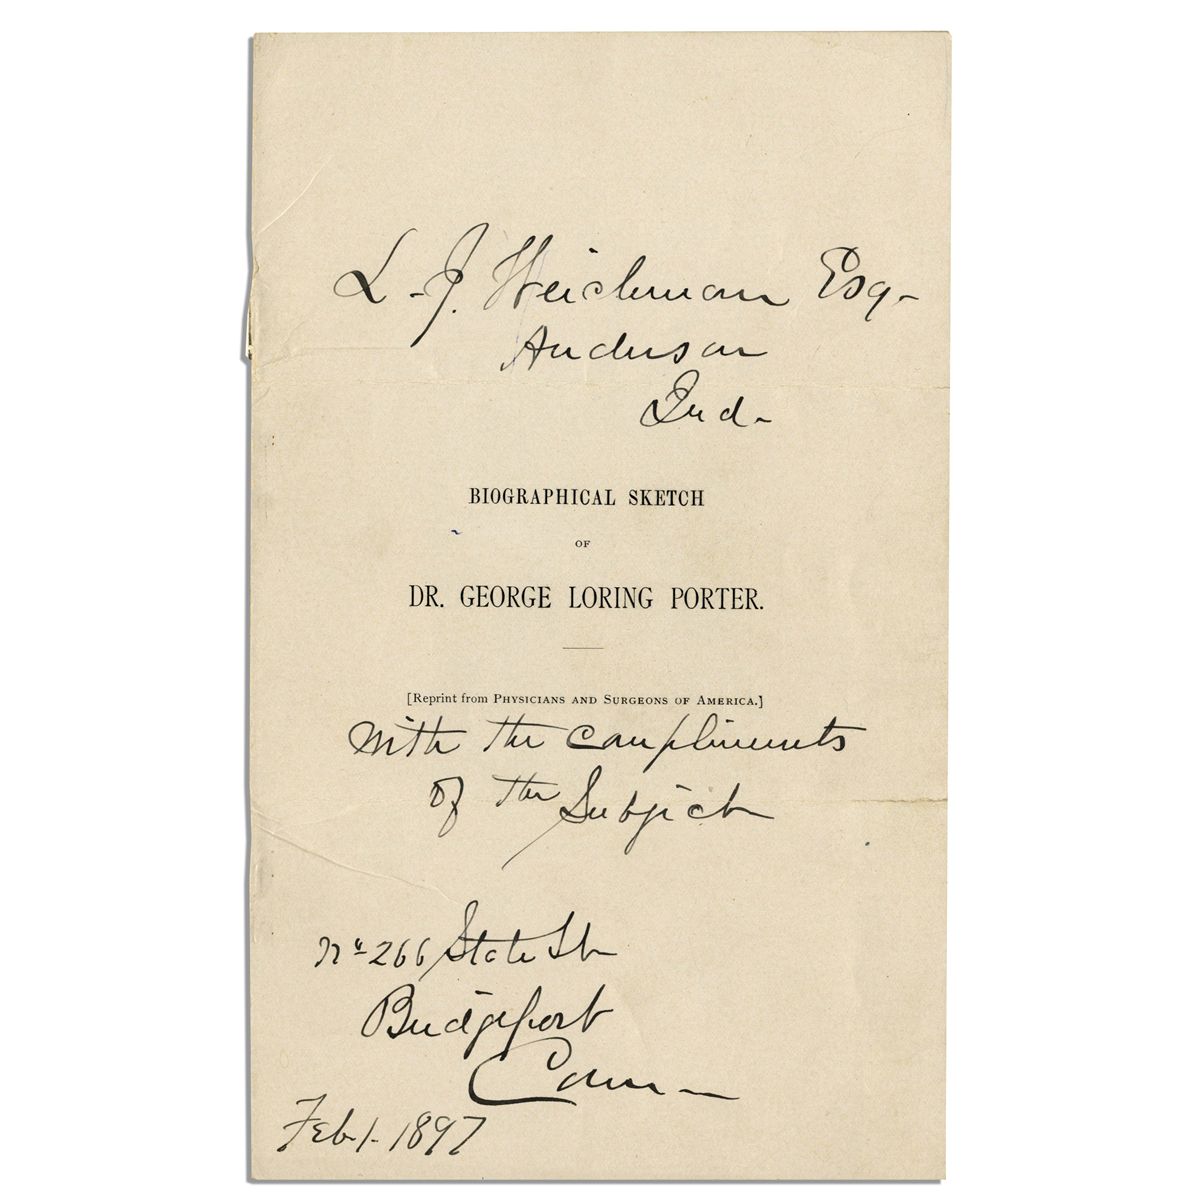 L. J. Weichman Esq-
Anderson
Ind-
BIOGRAPHICAL SKETCH
OF
DR. GEORGE LORING PORTER.
[Reprint from PHYSICIANS AND SURGEONS OF AMERICA.]
With the compliments
of the Subject
No 266 State St
Bridgeport
Conn-
Feb 1. 1897